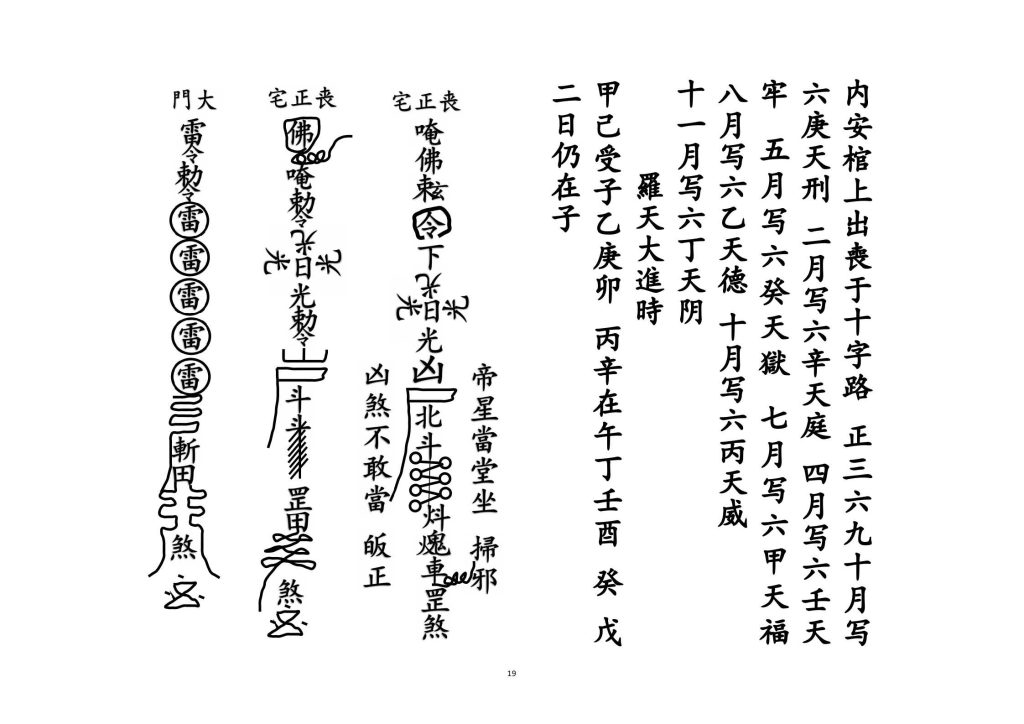 内安棺上出喪于十字路 正三六九十月写
六庚天刑 二月写六辛天庭 四月写六壬天
牢 五月写六癸天獄 七月写六甲天福
八月写六乙天德 十月写六丙天威
十一月写六丁天阴
羅天大進時
甲己受子乙庚卯 丙辛在午丁壬酉 癸 戊
二日仍在子
喪正宅
唵佛
令下
光光日光光
凶
北斗
車罡煞
帝星當堂坐 掃邪
凶煞不敢當 皈正
喪正宅
佛
唵勅令
光光日光光
勅令
斗斗
罡田
煞
大門
雷令
勅令
雷雷雷雷雷
斬田
煞
19